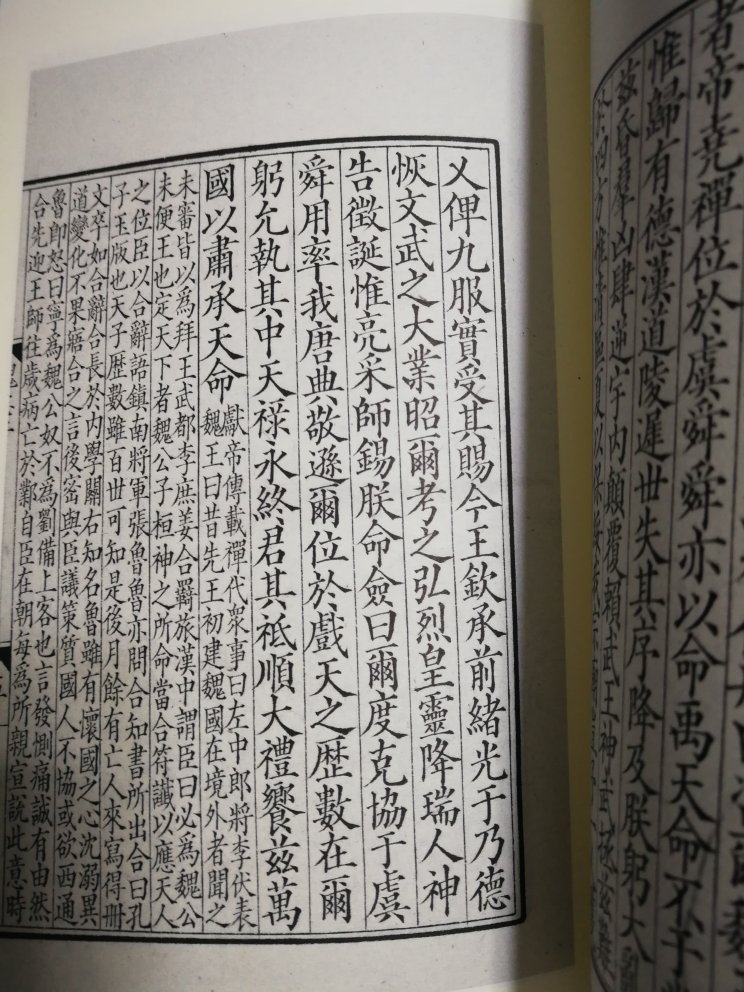 者帝堯禪位於虞舜舜亦以命禹天命不于
惟歸有德漢道陵遲世失其序降及朕躬大亂
茲昏羣凶肆逆宇內顛覆賴武王神武拯茲難
於四方惟清區夏以保綏我宗廟
乂俾九服實受其賜今王欽承前緒光于乃德
恢文武之大業昭爾考之弘烈皇靈降瑞人神
告徵誕惟亮采師錫朕命僉曰爾度克協于虞
舜用率我唐典敬遜爾位於戲天之歷數在爾
躬允執其中天祿永終君其祗順大禮饗茲萬
國以肅承天命獻帝傳載禪代衆事曰左中郎將李伏表
魏王曰昔先王初建魏國在境外者聞之
未審皆以爲拜王武都李庶姜合羈旅漢中謂臣曰必爲魏公
未便王也定天下者魏公子桓神之所命當合符讖以應天人
之位臣以合辭語鎮南將軍張魯魯亦問合知書所出合曰孔
子玉版也天子歷數雖百世可知是後月餘有亡人來寫得冊
文卒如合辭合長於內學關右知名魯雖有懷國之心沈溺異
道變化不果寤合之言後密與臣議策質國人不協或欲西通
魯即怒曰寧爲魏公奴不爲劉備上客也言發惻痛誠有由然
合先迎王師往歲病亡於鄴自臣在朝每爲所親宣說此意時